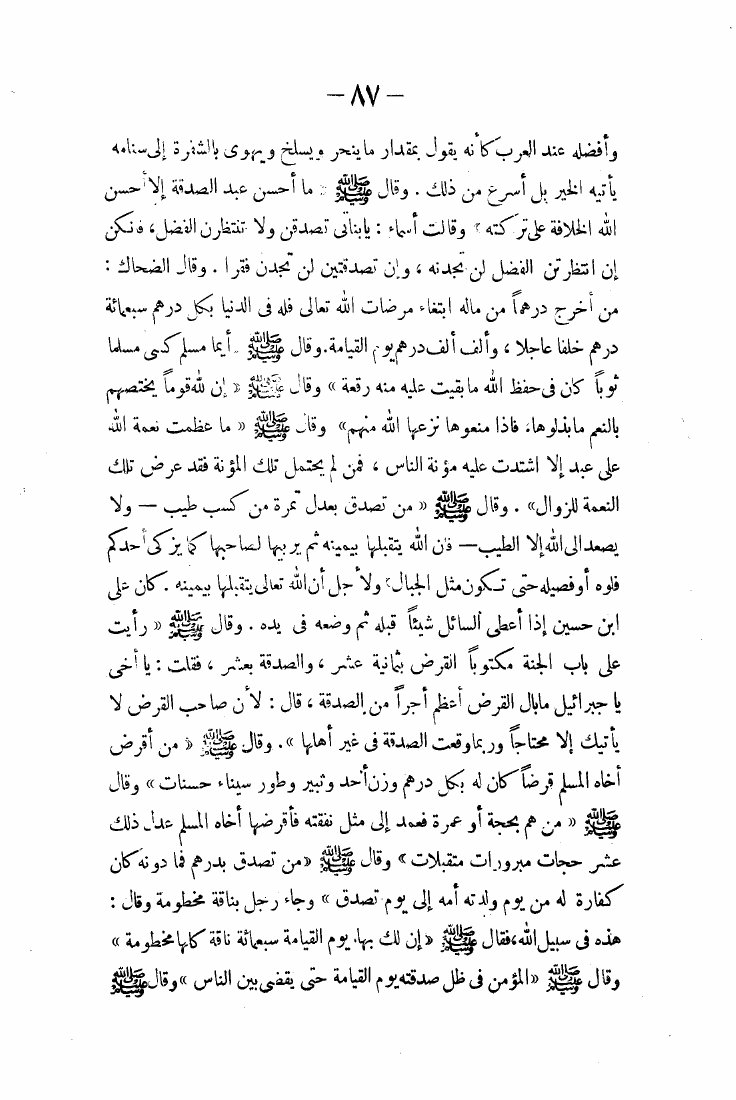 — ٨٧ —
وأفضله عند العرب كأنه يقول بمقدار ما ينحر ويسلخ ويهوى بالشفرة إلى سنامه
يأتيه الخير بل أسرع من ذلك . وقال ﷺ « ما أحسن عبد الصدقة إلا أحسن
الله الخلافة على تركته » وقالت أسماء : يابناتى تصدقن ولا تنتظرن الفضل، فانكن
إن انتظرتن الفضل لن تجدنه ، وإن تصدقتين لن تجدن فقرا . وقال الضحاك :
من أخرج درهماً من ماله ابتغاء مرضات الله تعالى فله فى الدنيا بكل درهم سبعمائة
درهم خلفا عاجلا ، وألف ألف درهم يوم القيامة. وقال ﷺ « أيما مسلم كسى مسلما
ثوباً كان فى حفظ الله ما بقيت عليه منه رقعة » وقال ﷺ « إن لله قوماً يختصهم
بالنعم ما بذلوها، فاذا منعوها نزعها الله منهم» وقال ﷺ « ما عظمت نعمة الله
على عبد إلا اشتدت عليه مؤنة الناس ، فمن لم يحتمل تلك المؤنة فقد عرض تلك
النعمة للزوال» . وقال ﷺ « من تصدق بعدل تمرة من كسب طيب — ولا
يصعد الى الله إلا الطيب — فان الله يتقبلها بيمينه ثم يربيها لصاحبها كما يزكى أحدكم
فلوه أو فصيله حتى تكون مثل الجبال» ولأجل أن الله تعالى يتقبلها بيمينه . كان على
ابن حسين إذا أعطى السائل شيئاً قبله ثم وضعه فى يده . وقال ﷺ « رأيت
على باب الجنة مكتوباً القرض بثمانية عشر ، والصدقة بعشر ، فقلت : يا أخى
يا جبرائيل مابال القرض أعظم أجراً من الصدقة ، قال : لأن صاحب القرض لا
يأتيك إلا محتاجاً وربما وقعت الصدقة فى غير أهلها » . وقال ﷺ « من أقرض
أخاه المسلم قرضاً كان له بكل درهم وزن أحد وثبير وطور سيناء حسنات » وقال
ﷺ « من هم بحجة أو عمرة فعمد إلى مثل نفقته فأقرضها أخاه المسلم عدل ذلك
عشر حجات مبرورات متقبلات » وقال ﷺ «من تصدق بدرهم فما دونه كان
كفارة له من يوم ولدته أمه إلى يوم تصدق » وجاء رجل بناقة مخطومة وقال :
هذه فى سبيل الله، فقال ﷺ «إن لك بها يوم القيامة سبعمائة ناقة كلها مخطومة »
وقال ﷺ «المؤمن فى ظل صدقته يوم القيامة حتى يقضى بين الناس » وقال ﷺ